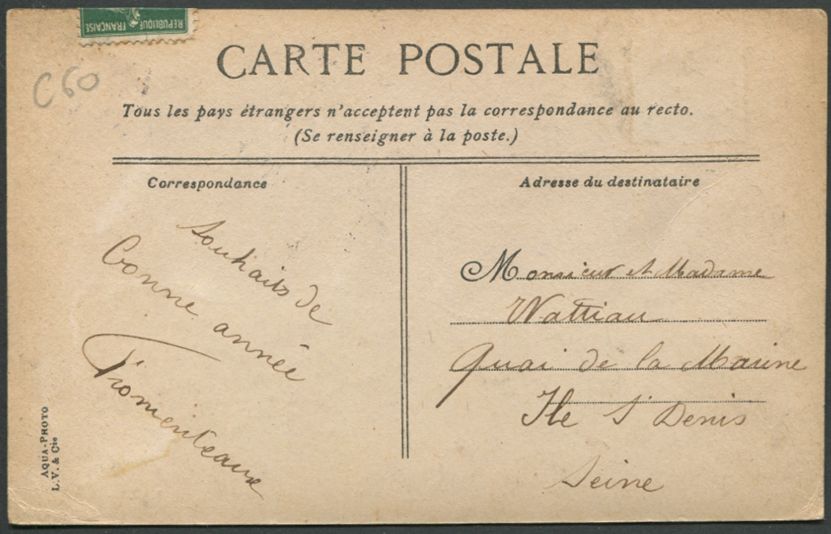 REPUBLIQUE FRANÇAISE
C60
CARTE POSTALE
Tous les pays étrangers n'acceptent pas la correspondance au recto.
(Se renseigner à la poste.)
Correspondance
souhaits de
bonne année
Fromenteaux
Adresse du destinataire
Monsieur et Madame
Wattiau
Quai de la Marine
Ile St Denis
Seine
AQUA-PHOTO
L.V. & Cie